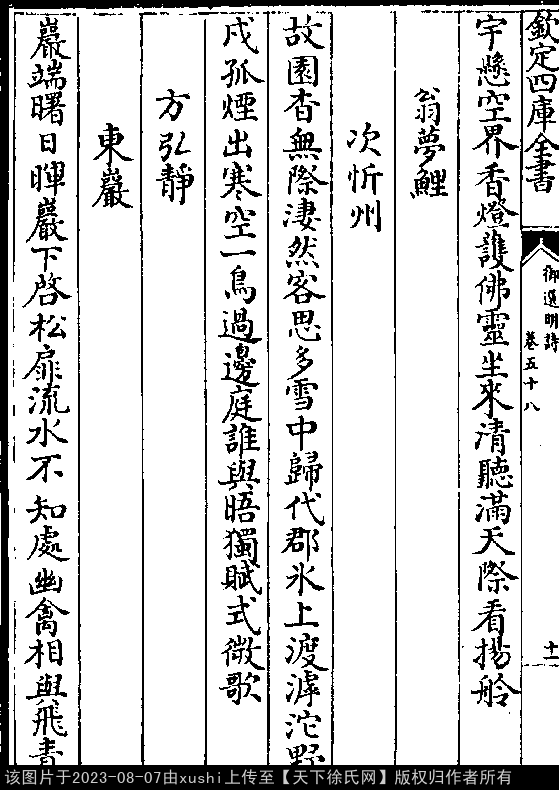 欽定四庫全書
御選明詩
卷五十八
十一
宇懸空界香燈護佛靈坐來清聽滿天際看揚舲
翁夢鯉
次忻州
故園杳無際淒然客思多雪中歸代郡氷上渡滹沱野
戍孤煙出寒空一鳥過邊庭誰與晤獨賦式微歌
方弘靜
東巖
巖端曙日暉巖下啓松扉流水不知處幽禽相與飛青
该图片于2023-08-07由xushi上传至【天下徐氏网】版权归作者所有